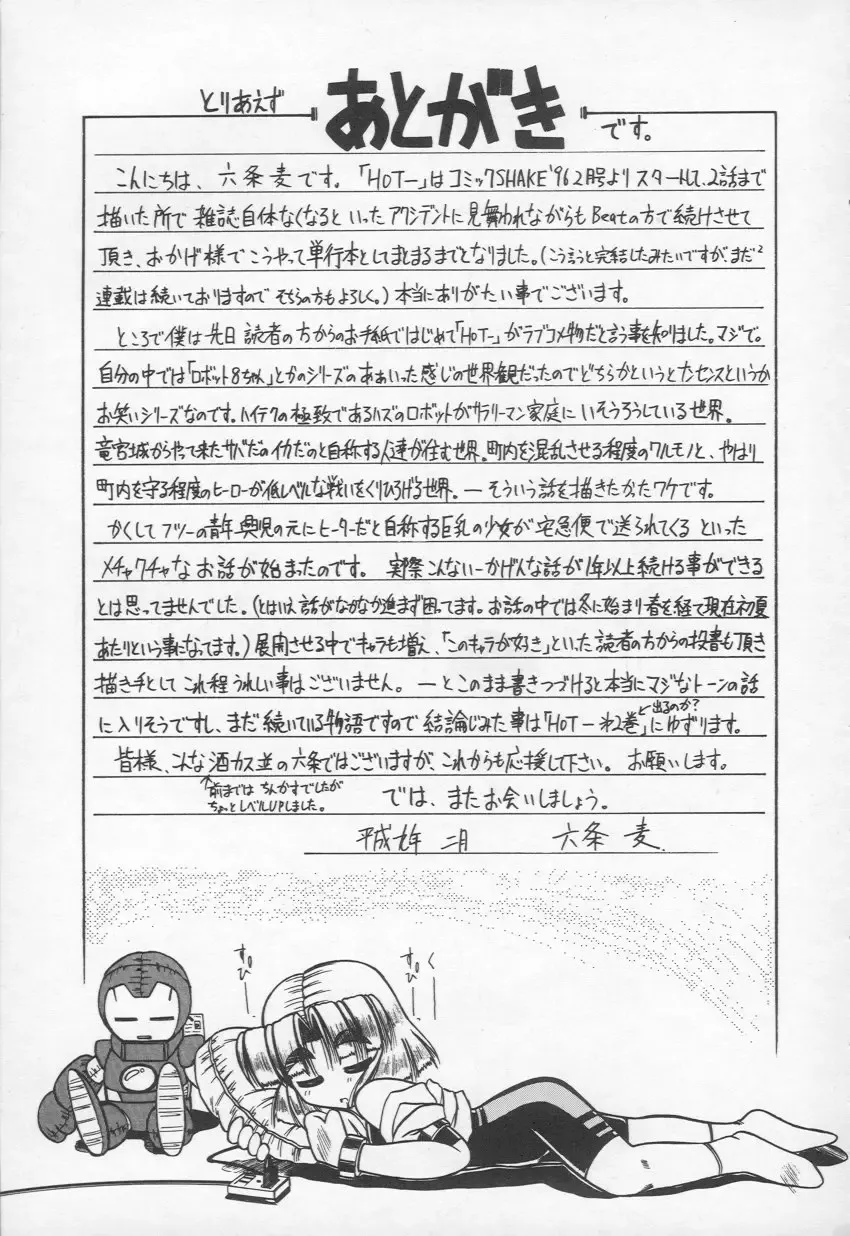 とりあえず
あとがき
です。
こんにちは、六条麦です。「HOT-」はコミックSHAKE'96 2月号よりスタートして、2話まで
描いた所で雑誌自体なくなるといったアクシデントに見舞われながらもBeatの方で続けさせて
頂き、おかげ様でこうやって単行本としてまとまるまでとなりました。(こう言うと完結したみたいですが、まだ2
連載は続いておりますのでそちらの方もよろしく。)本当にありがたい事でございます。
ところで僕は先日読者の方からのお手紙ではじめて「HOT-」がラブコメ物だと言う事を知りました。マジで。
自分の中では「ロボット8ちゃん」とかのシリーズのああいった感じの世界観だったのでどちらかというとナンセンスというか
お笑いシリーズなのです。ハイテクの極致であるハズのロボットがサラリーマン家庭にいそうろうしている世界。
竜宮城からやって来たサバだのイカだのと自称する人達が住む世界。町内を混乱させる程度のワルモノと、やはり
町内を守る程度のヒーローが低レベルな戦いをくりひろげる世界。—そういう話を描きたかたワケです。
かくしてフツーの青年 興児の元にヒーターだと自称する巨乳の少女が宅急便で送られてくるといった
メチャクチャなお話が始まったのです。実際こんないーかげんな話が1年以上続ける事ができる
とは思ってませんでした。(とはいえ、話がなかなか進まず困ってます。お話の中では冬に始まり春を経て現在初夏
あたりという事になってます。)展開させる中でキャラも増え、「このキャラが好き」といった読者の方からの投書も頂き
描き手としてこれ程うれしい事はございません。—とこのまま書きつづけると本当にマジなトーンの話
に入りそうですし、まだ続いている物語ですので結論じみた事は「HOT-㐧2巻」にゆずります。
と出るのか?
皆様、こんな酒カス並の六条ではございますが、これからも応援して下さい。お願いします。
↑前まではちんかすでしたが
ちょっとレベルUPしました。
では、またお会いしましょう。
平成九年 二月 六条 麦.
すぴー
すぴー
く